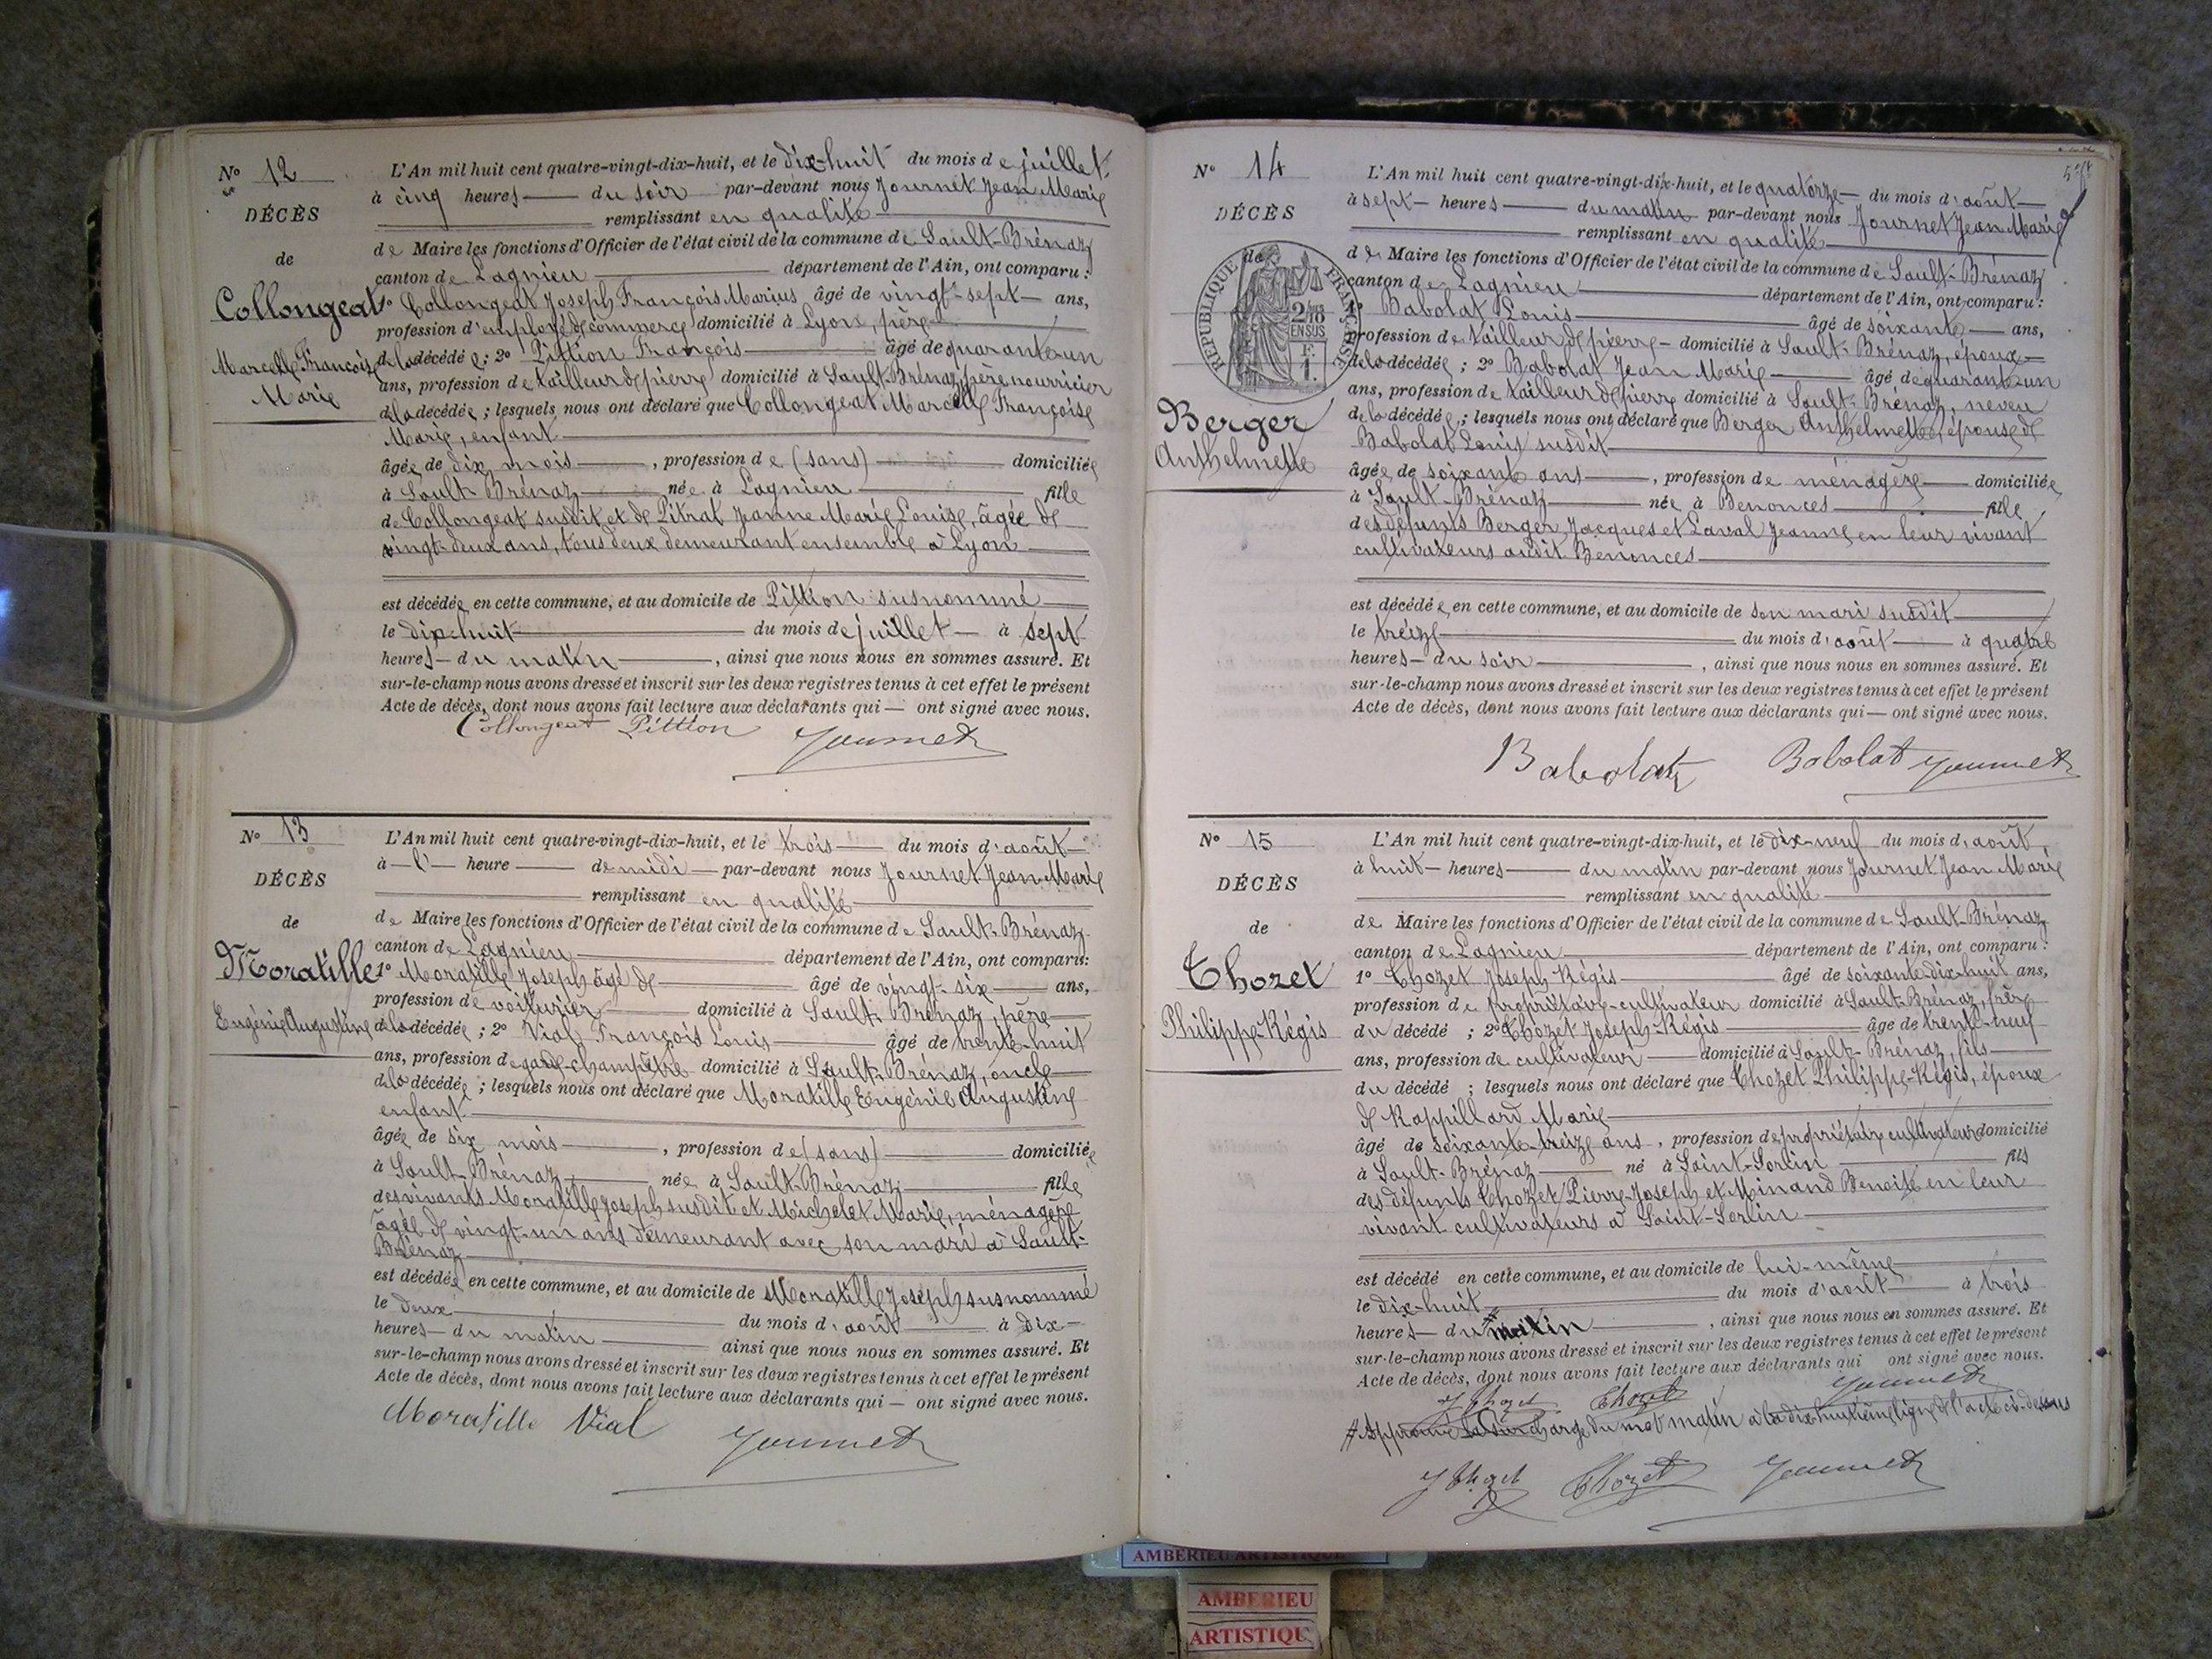 N° 12
DÉCÈS
de
Collongeat
Marcelle Françoise
Marie
L'An mil huit cent quatre-vingt-dix-huit, et le dix-huit du mois de juillet
à cinq heures du soir par-devant nous Journet Jean Marie
remplissant en qualité
de Maire les fonctions d'Officier de l'état civil de la commune de Sault-Brénaz
canton de Lagnieu département de l'Ain, ont comparu :
1° Collongeat Joseph François Marius âgé de vingt-sept ans,
profession d'employé de commerce domicilié à Lyon, père
de la décédée ; 2° Pittion François âgé de quarante-un
ans, profession de tailleur de pierre domicilié à Sault-Brénaz, père nourricier
de la décédée ; lesquels nous ont déclaré que Collongeat Marcelle Françoise
Marie, enfant
âgée de dix mois, profession de (sans) domiciliée
à Sault-Brénaz née à Lagnieu fille
de Collongeat susdit et de Pitrat Jeanne Marie Louise, âgée de
vingt-deux ans, tous deux demeurant ensemble à Lyon
est décédée en cette commune, et au domicile de Pittion susnommé
le dix-huit du mois de juillet à sept
heures du matin, ainsi que nous nous en sommes assuré. Et
sur-le-champ nous avons dressé et inscrit sur les deux registres tenus à cet effet le présent
Acte de décès, dont nous avons fait lecture aux déclarants qui — ont signé avec nous.
Collongeat Pittion Journet
N° 13
DÉCÈS
de
Moratille
Eugénie Augustine
L'An mil huit cent quatre-vingt-dix-huit, et le trois du mois d'août
à l' heure de midi par-devant nous Journet Jean Marie
remplissant en qualité
de Maire les fonctions d'Officier de l'état civil de la commune de Sault-Brénaz
canton de Lagnieu département de l'Ain, ont comparu :
1° Moratille Joseph âgé de âgé de vingt-six ans,
profession de voiturier domicilié à Sault-Brénaz, père
de la décédée ; 2° Vial François Louis âgé de trente-huit
ans, profession de garde-champêtre domicilié à Sault-Brénaz, oncle
de la décédée ; lesquels nous ont déclaré que Moratille Eugénie Augustine
enfant
âgée de six mois, profession de (sans) domiciliée
à Sault-Brénaz née à Sault-Brénaz fille
des vivants Moratille Joseph susdit et Michelet Marie, ménagère
âgée de vingt-un ans demeurant avec son mari à Sault-
Brénaz
est décédée en cette commune, et au domicile de Moratille Joseph susnommé
le deux du mois d'août à dix
heures du matin ainsi que nous nous en sommes assuré. Et
sur-le-champ nous avons dressé et inscrit sur les deux registres tenus à cet effet le présent
Acte de décès, dont nous avons fait lecture aux déclarants qui — ont signé avec nous.
Moratille Vial
Journet
N° 14
DÉCÈS
de
RÉPUBLIQUE FRANÇAISE
2/10
EN SUS
F.
1.
Berger
Anthelmette
L'An mil huit cent quatre-vingt-dix-huit, et le quatorze du mois d'août
à sept heures du matin par-devant nous Journet Jean Marie
remplissant en qualité
de Maire les fonctions d'Officier de l'état civil de la commune de Sault-Brénaz
canton de Lagnieu département de l'Ain, ont comparu :
1° Babolat Louis âgé de soixante ans,
profession de tailleur de pierre domicilié à Sault-Brénaz, époux
de la décédée ; 2° Babolat Jean Marie âgé de quarante-un
ans, profession de tailleur de pierre domicilié à Sault-Brénaz, neveu
de la décédée ; lesquels nous ont déclaré que Berger Anthelmette, épouse de
Babolat Louis susdit
âgée de soixante ans, profession de ménagère domiciliée
à Sault-Brénaz née à Benonces fille
des défunts Berger Jacques et Laval Jeanne en leur vivant
cultivateurs audit Benonces
est décédée en cette commune, et au domicile de son mari susdit
le treize du mois d'août à quatre
heures du soir, ainsi que nous nous en sommes assuré. Et
sur-le-champ nous avons dressé et inscrit sur les deux registres tenus à cet effet le présent
Acte de décès, dont nous avons fait lecture aux déclarants qui — ont signé avec nous.
Babolat Babolat Journet
N° 15
DÉCÈS
de
Chozet
Philippe-Régis
L'An mil huit cent quatre-vingt-dix-huit, et le dix-neuf du mois d'août,
à huit heures du matin par-devant nous Journet Jean Marie
remplissant en qualité
de Maire les fonctions d'Officier de l'état civil de la commune de Sault-Brénaz
canton de Lagnieu département de l'Ain, ont comparu :
1° Chozet Joseph-Régis âgé de soixante-dix-huit ans,
profession de propriétaire-cultivateur domicilié à Sault-Brénaz, frère
du décédé ; 2° Chozet Joseph-Régis âgé de trente-neuf
ans, profession de cultivateur domicilié à Sault-Brénaz, fils
du décédé ; lesquels nous ont déclaré que Chozet Philippe-Régis, époux
de Rappillard Marie
âgé de soixante-treize ans, profession de propriétaire cultivateur domicilié
à Sault-Brénaz né à Saint-Sorlin fils
des défunts Chozet Pierre-Joseph et Minand Benoite en leur
vivant cultivateurs à Saint-Sorlin
est décédé en cette commune, et au domicile de lui-même
le dix-huit du mois d'août à trois
heures du # matin, ainsi que nous nous en sommes assuré. Et
sur-le-champ nous avons dressé et inscrit sur les deux registres tenus à cet effet le présent
Acte de décès, dont nous avons fait lecture aux déclarants qui ont signé avec nous.
J Chozet Chozet Journet
# Approuvé la surcharge du mot matin à la dix huitième ligne de l'acte ci-dessus
J Chozet Chozet Journet
AMBERIEU ARTISTIQUE
AMBERIEU
ARTISTIQU